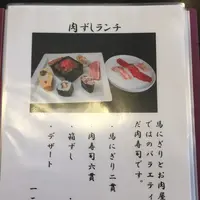 肉ずしランチ
馬にぎりとお肉屋
ではのバラエティ
だ肉寿司です。
・馬にぎり二貫
肉寿司六貫
・箱ずし
・デザート